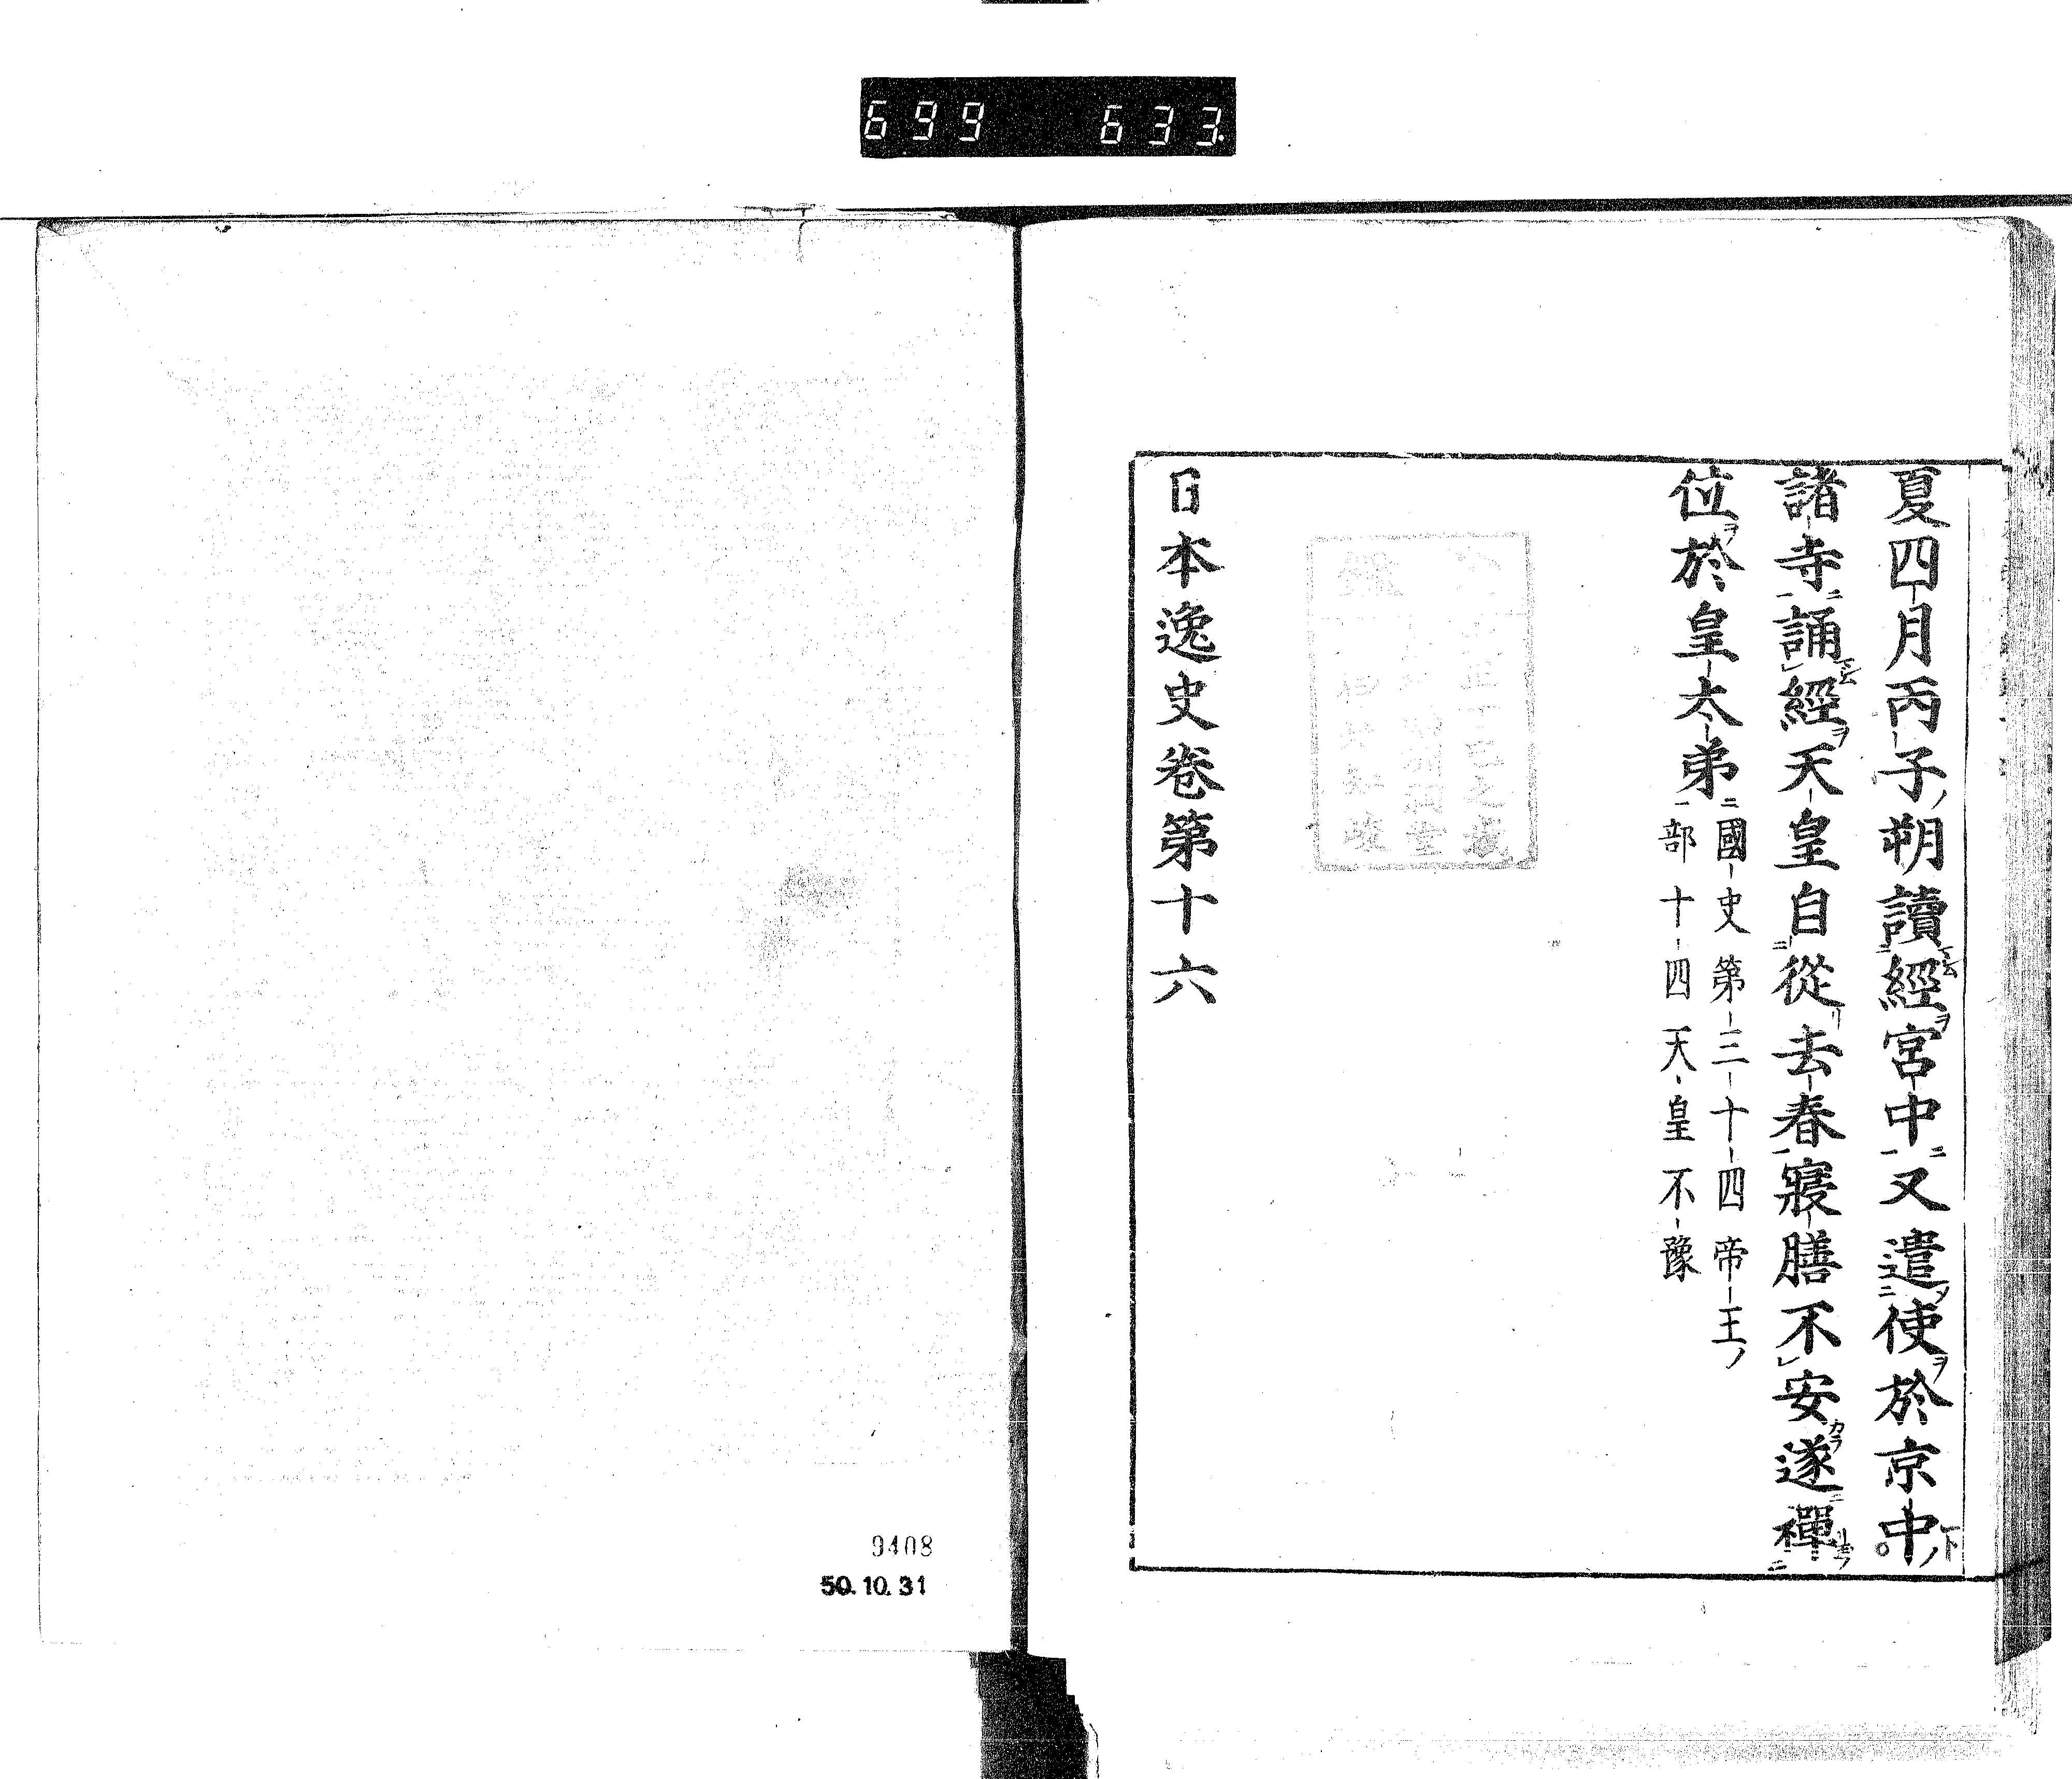 699 633.
夏四月丙子朔讀經宮中又遣使於京中
諸寺誦經天皇自從去春寢膳不安遂禪
位於皇太弟
國史第三十四帝王
部十四天皇不豫
日本逸史卷第十六
9408
50.10.31